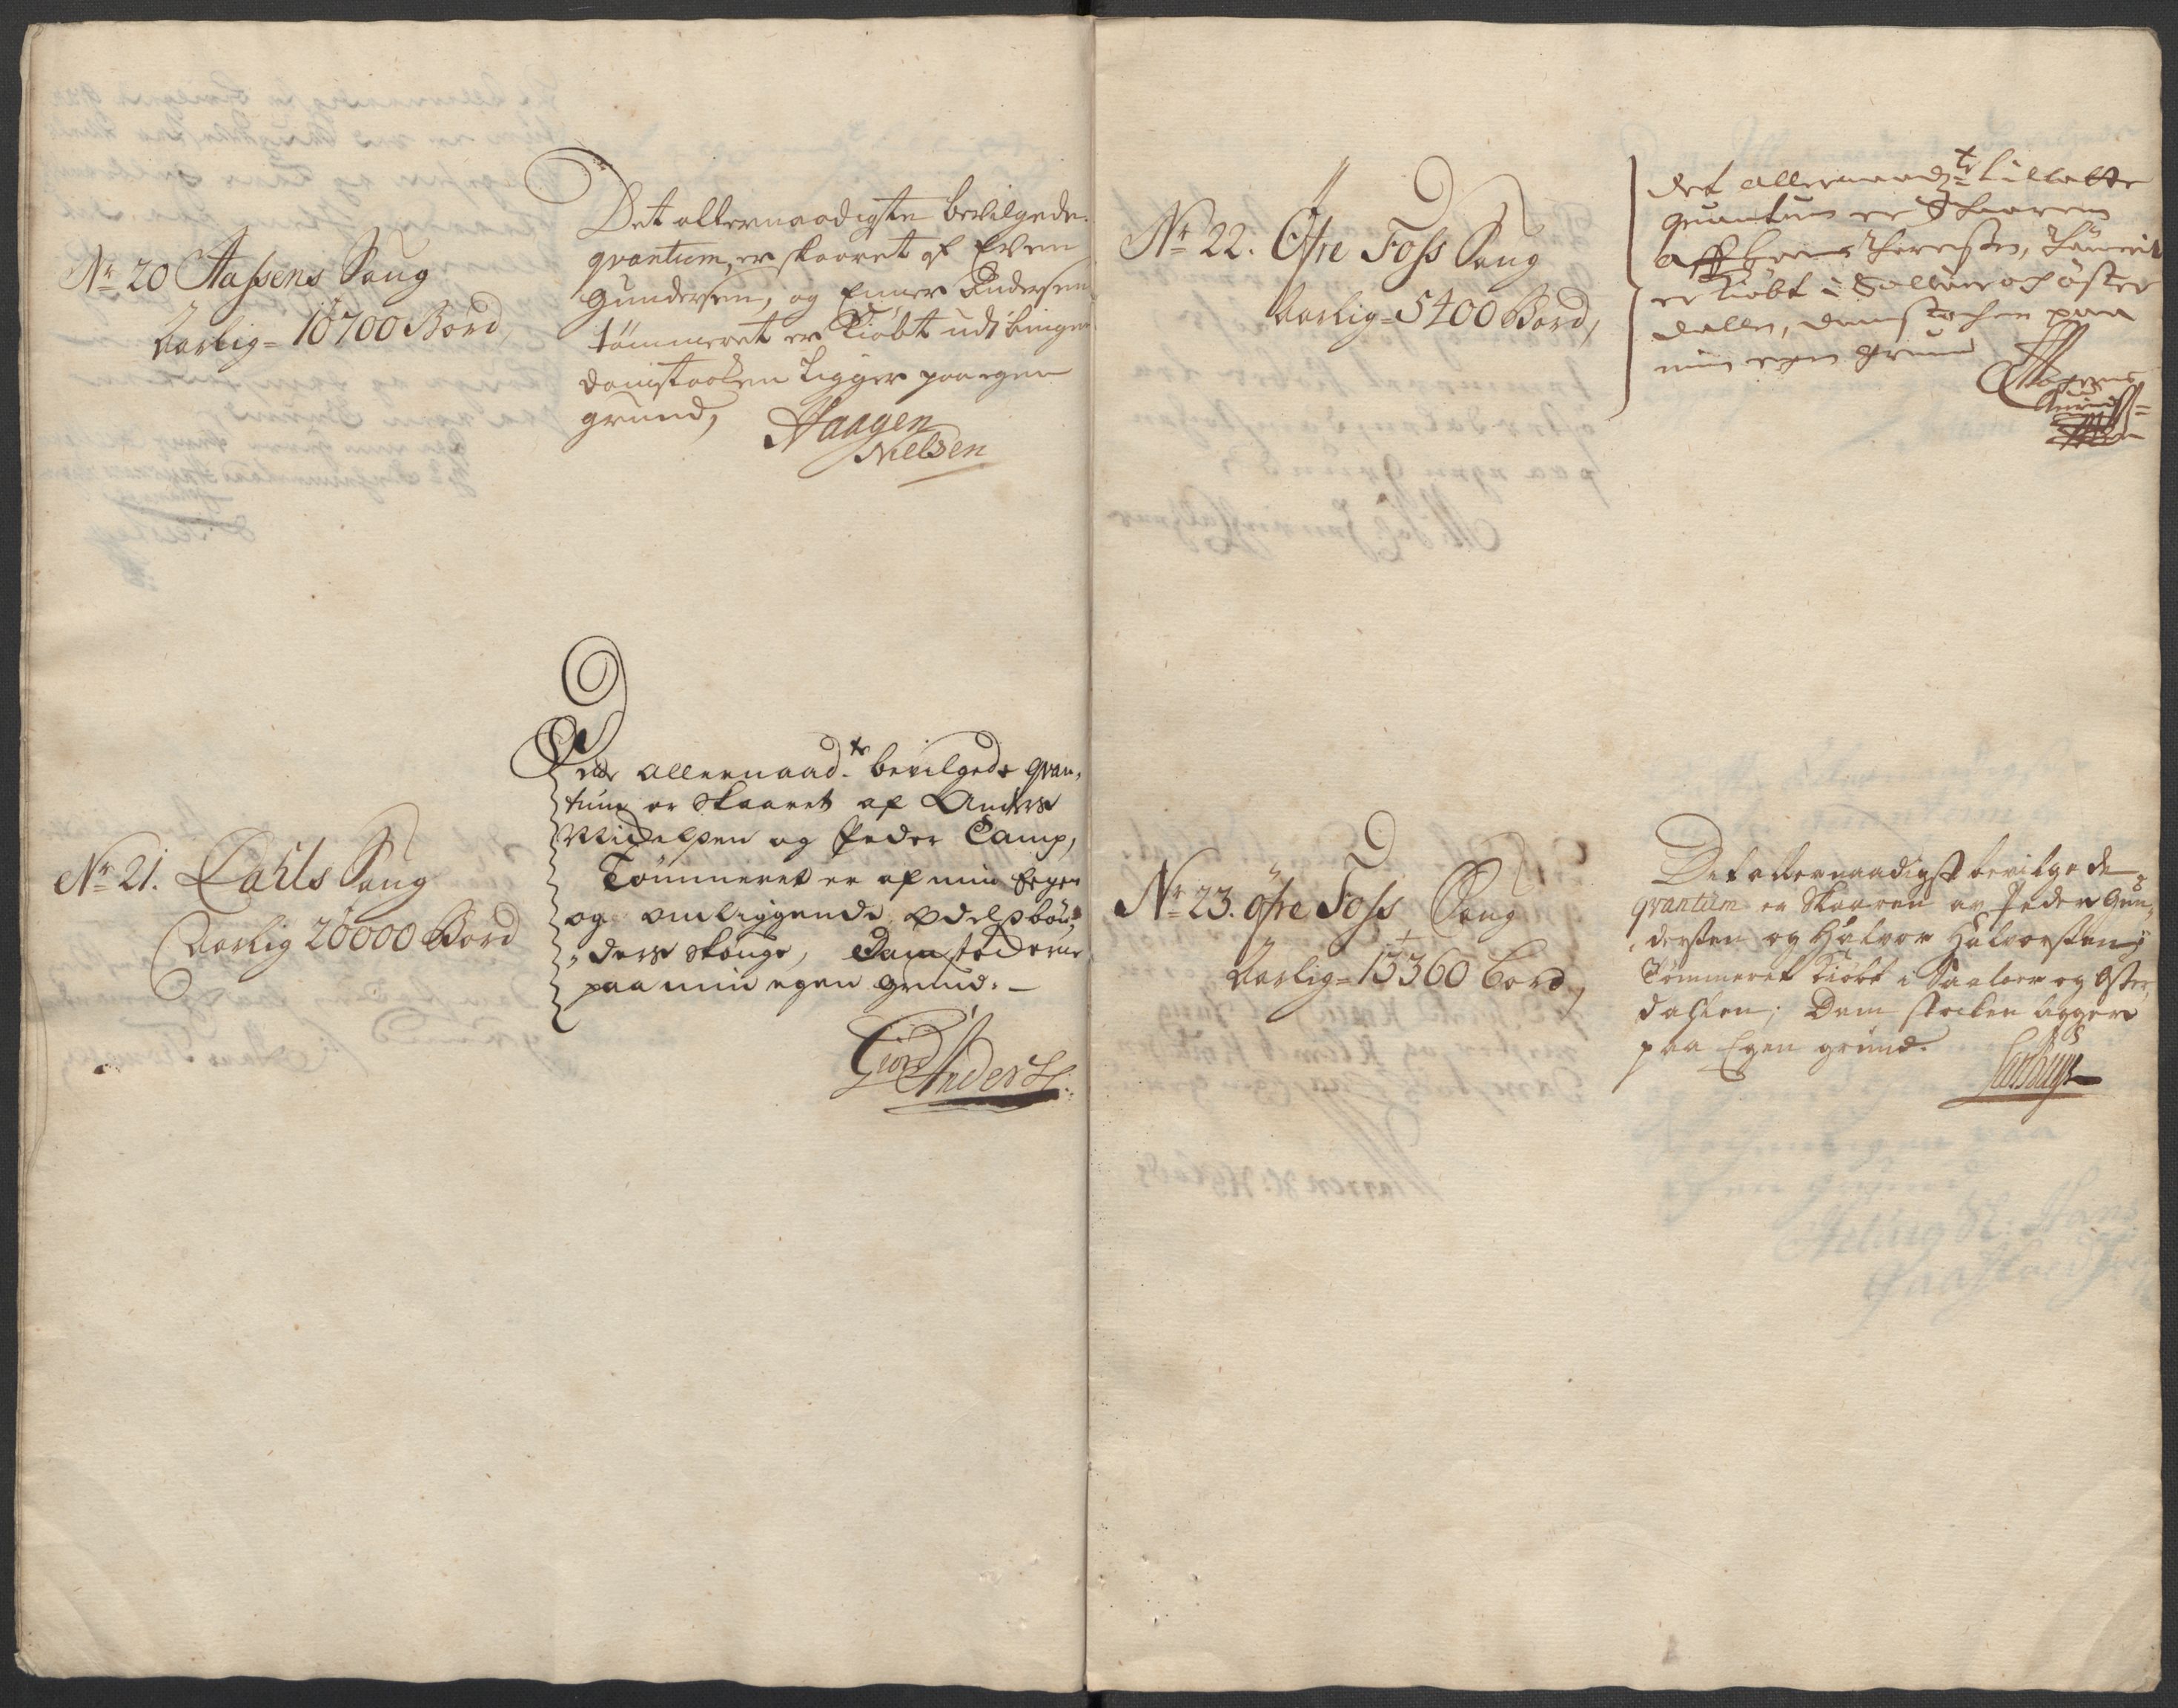 Nr 20 Aassens Saug
Aarlig = 10700 Bord,
Det allernaadigste bevilgede
qvantum, er skaaret af Even
Gundersen, og Einer Andersen
tömmeret er Kiöbt udi
damstocken ligger paa egen
grund,
Haagen
Nielsen
Nr 21. Dahls Saug
Aarlig 20000 Bord
Det allernaad.te bevilgede qvan-
tum er skaaret af Anders
og Peder Camp,
Tömmeret er af min Eegen
og omliggende Odelsbön-
ders skouge,
paa min egen grund. -
Giord Anders:
Nr 22. Öfre Foss Saug
Aarlig = 5400 Bord,
det allernaadgte tillatte
quantum er Skaaren
aff
er Kiöbt i Sollöer och öster
dallen, damstochen paa
min egen grund
Nr 23. öfre Foss Saug
Aarlig = 13360 Bord,
Det allernaadigst bevilgede
qvantum er Skaaren av Peder Gun-
dersen og Halvor Halvorsen;
Tömmeret Kiöbt i Saaloer og Öster-
dahlen; Dam stocken ligger
paa Egen grund.